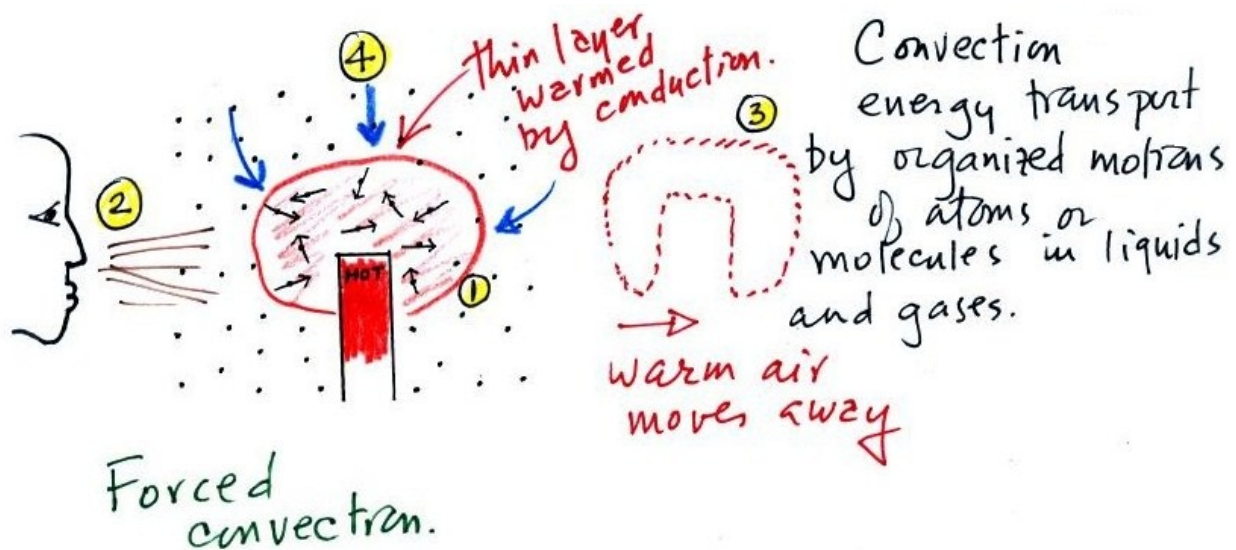 4
thin layer
warmed
by conduction.
3
Convection
energy transport
by organized motions
of atoms or
molecules in liquids
and gases.
2
HOT
1
warm air
moves away
Forced
convection.